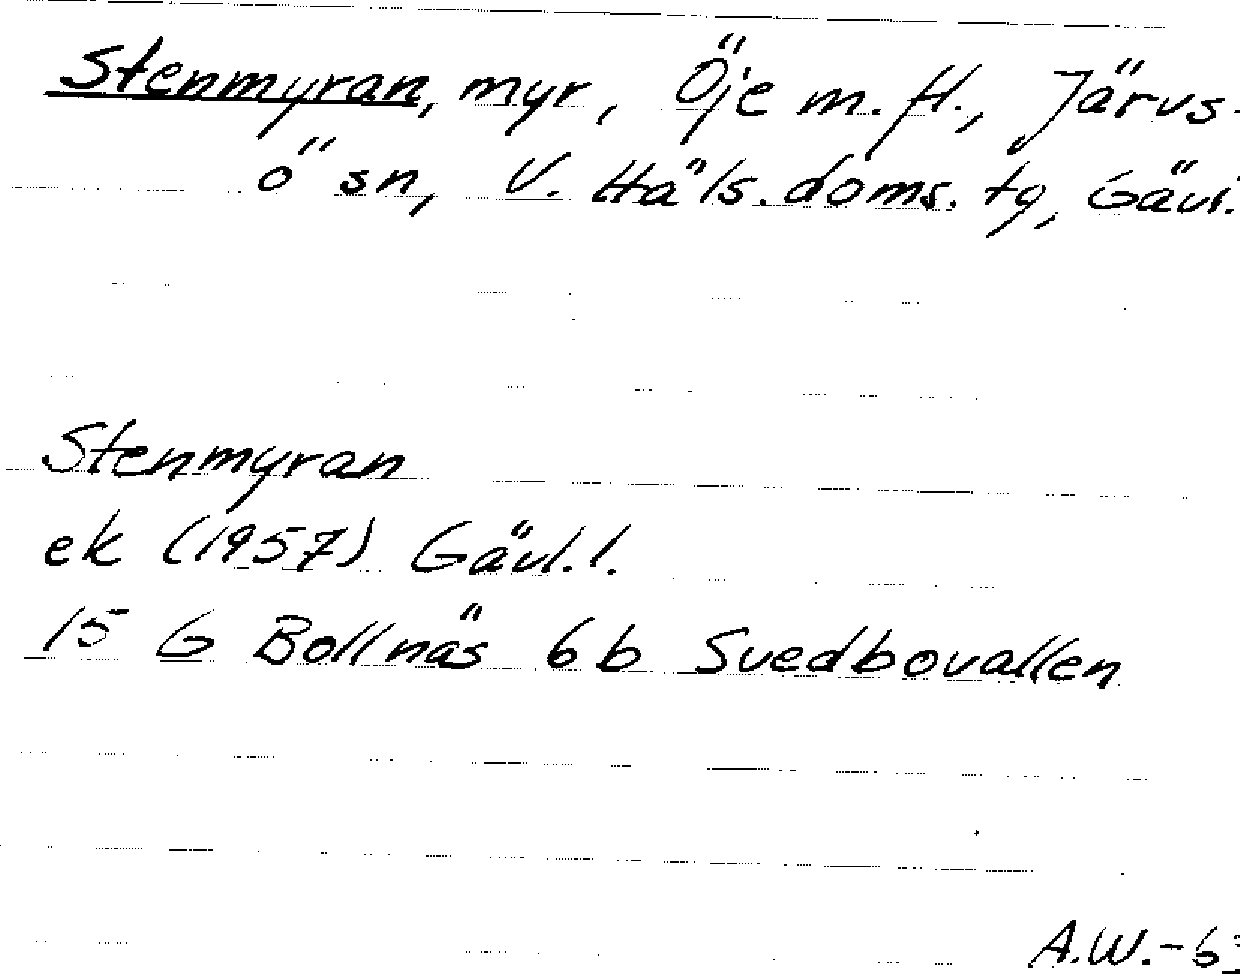 Stenmyran, myr, Öje m.fl., Järvs-
ö sn, V. Häls. doms. tg, Gävl.
Stenmyran
ek (1957) Gävl.l.
15 G Bollnäs 6b Svedbovallen
A.W.-6